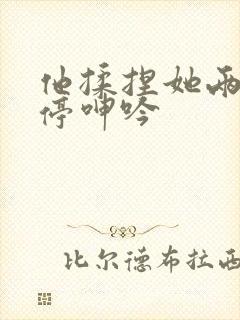 他揉捏她两
停呻吟
比尔德布拉西